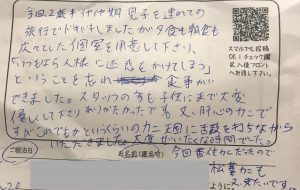 今回2歳半の息子を連れての
旅行でドキドキしましたが夕食も朝食も
広々とした個室を用意して下さり、
「いつもなら人様に迷惑をかけてしまう」
ということを忘れ食事が
できました。スタッフの方も子供にまで大変
優しくして下さりありがたかったです。又、肝心のカニで
すが"これでもか"というくらいのカニ天国に舌鼓を打ちながら
いただきました。大変ぜいたくな時間でした。
今回番ガニだったので
松葉ガニも
ように又来たいです
スマホでも投稿
OK!チェック欄
記入後フロント
へお渡し下さい。
ご宿泊日
お名前(匿名可)